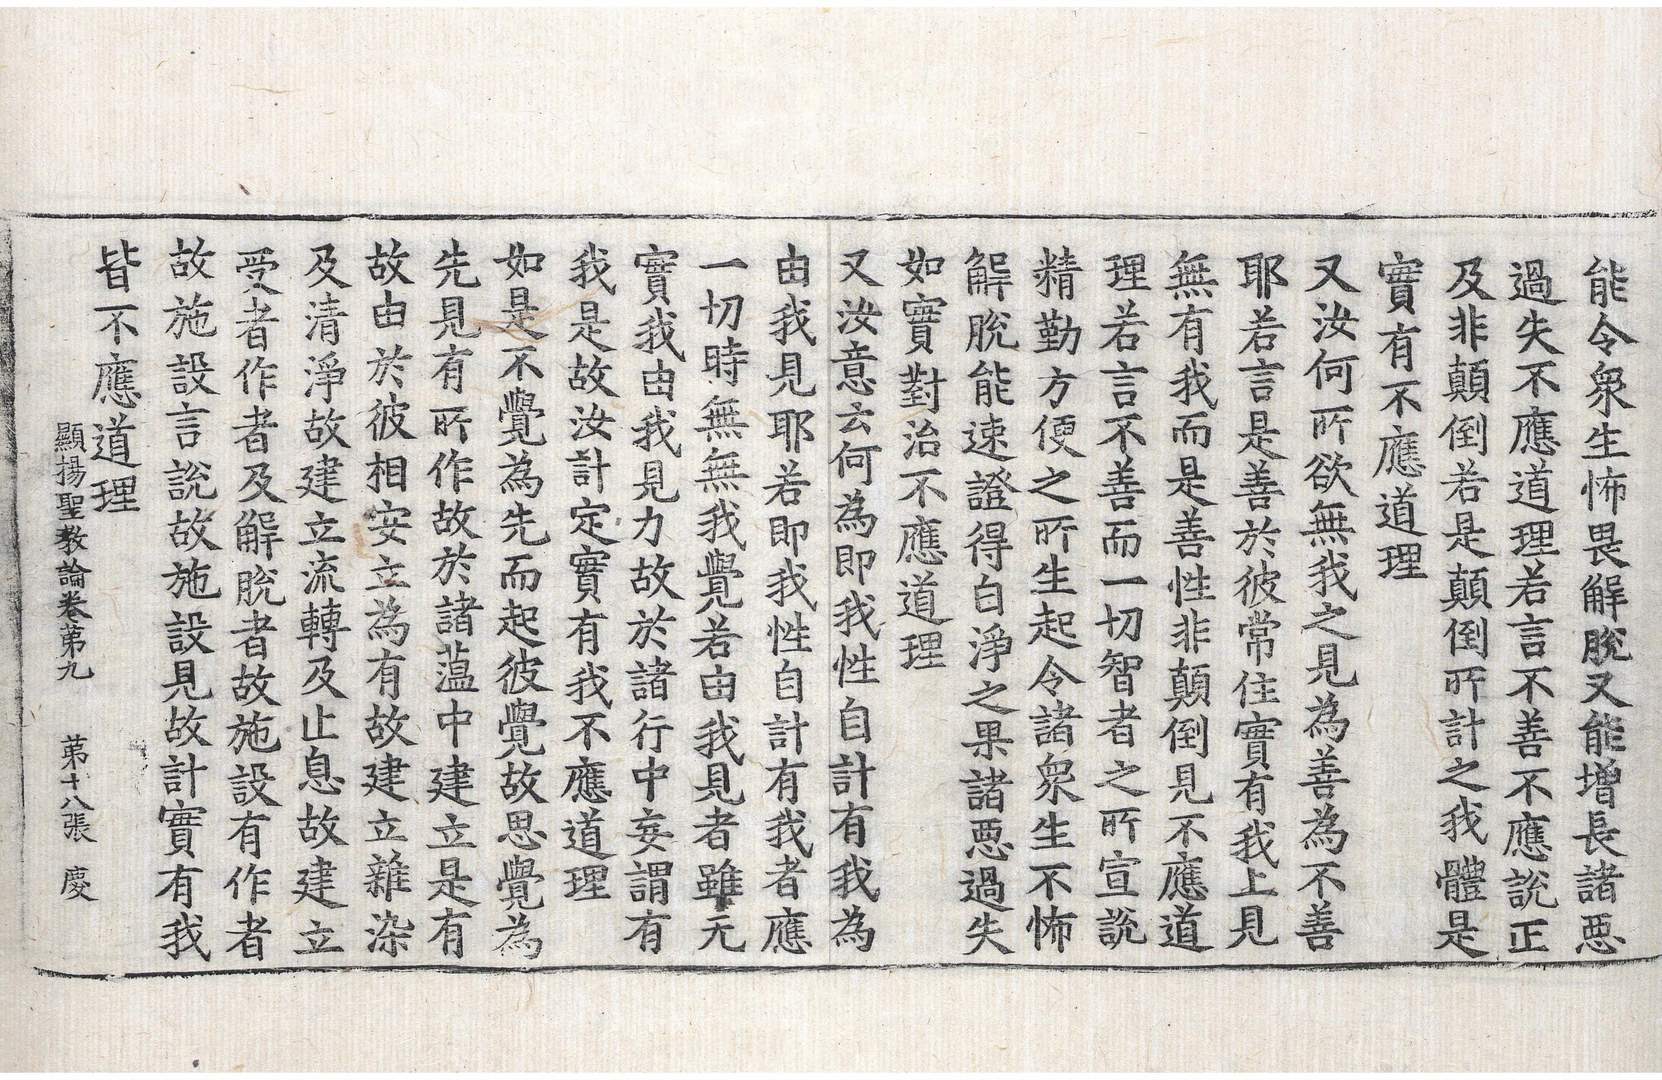 能令衆生怖畏解脫又能增長諸惡
過失不應道理若言不善不應說正
及非顛倒若是顛倒所計之我體是
實有不應道理
又汝何所欲無我之見為善為不善
耶若言是善於彼常住實有我上見
無有我而是善性非顛倒見不應道
理若言不善而一切智者之所宣說
精勤方便之所生起令諸衆生不怖
解脫能速證得白淨之果諸惡過失
如實對治不應道理
又汝意云何為即我性自計有我為
由我見耶若即我性自計有我者應
一切時無無我覺若由我見者雖无
實我由我見力故於諸行中妄謂有
我是故汝計定實有我不應道理
如是不覺為先而起彼覺故思覺為
先見有所作故於諸薀中建立是有
故由於彼相安立為有故建立雜染
及清淨故建立流轉及止息故建立
受者作者及解脫者故施設有作者
故施設言說故施設見故計實有我
皆不應道理
顯揚聖教論卷第九　第十八張　慶